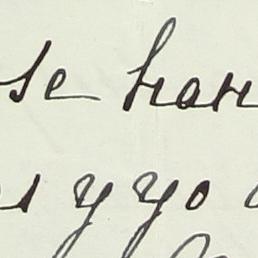 se han
s y yo